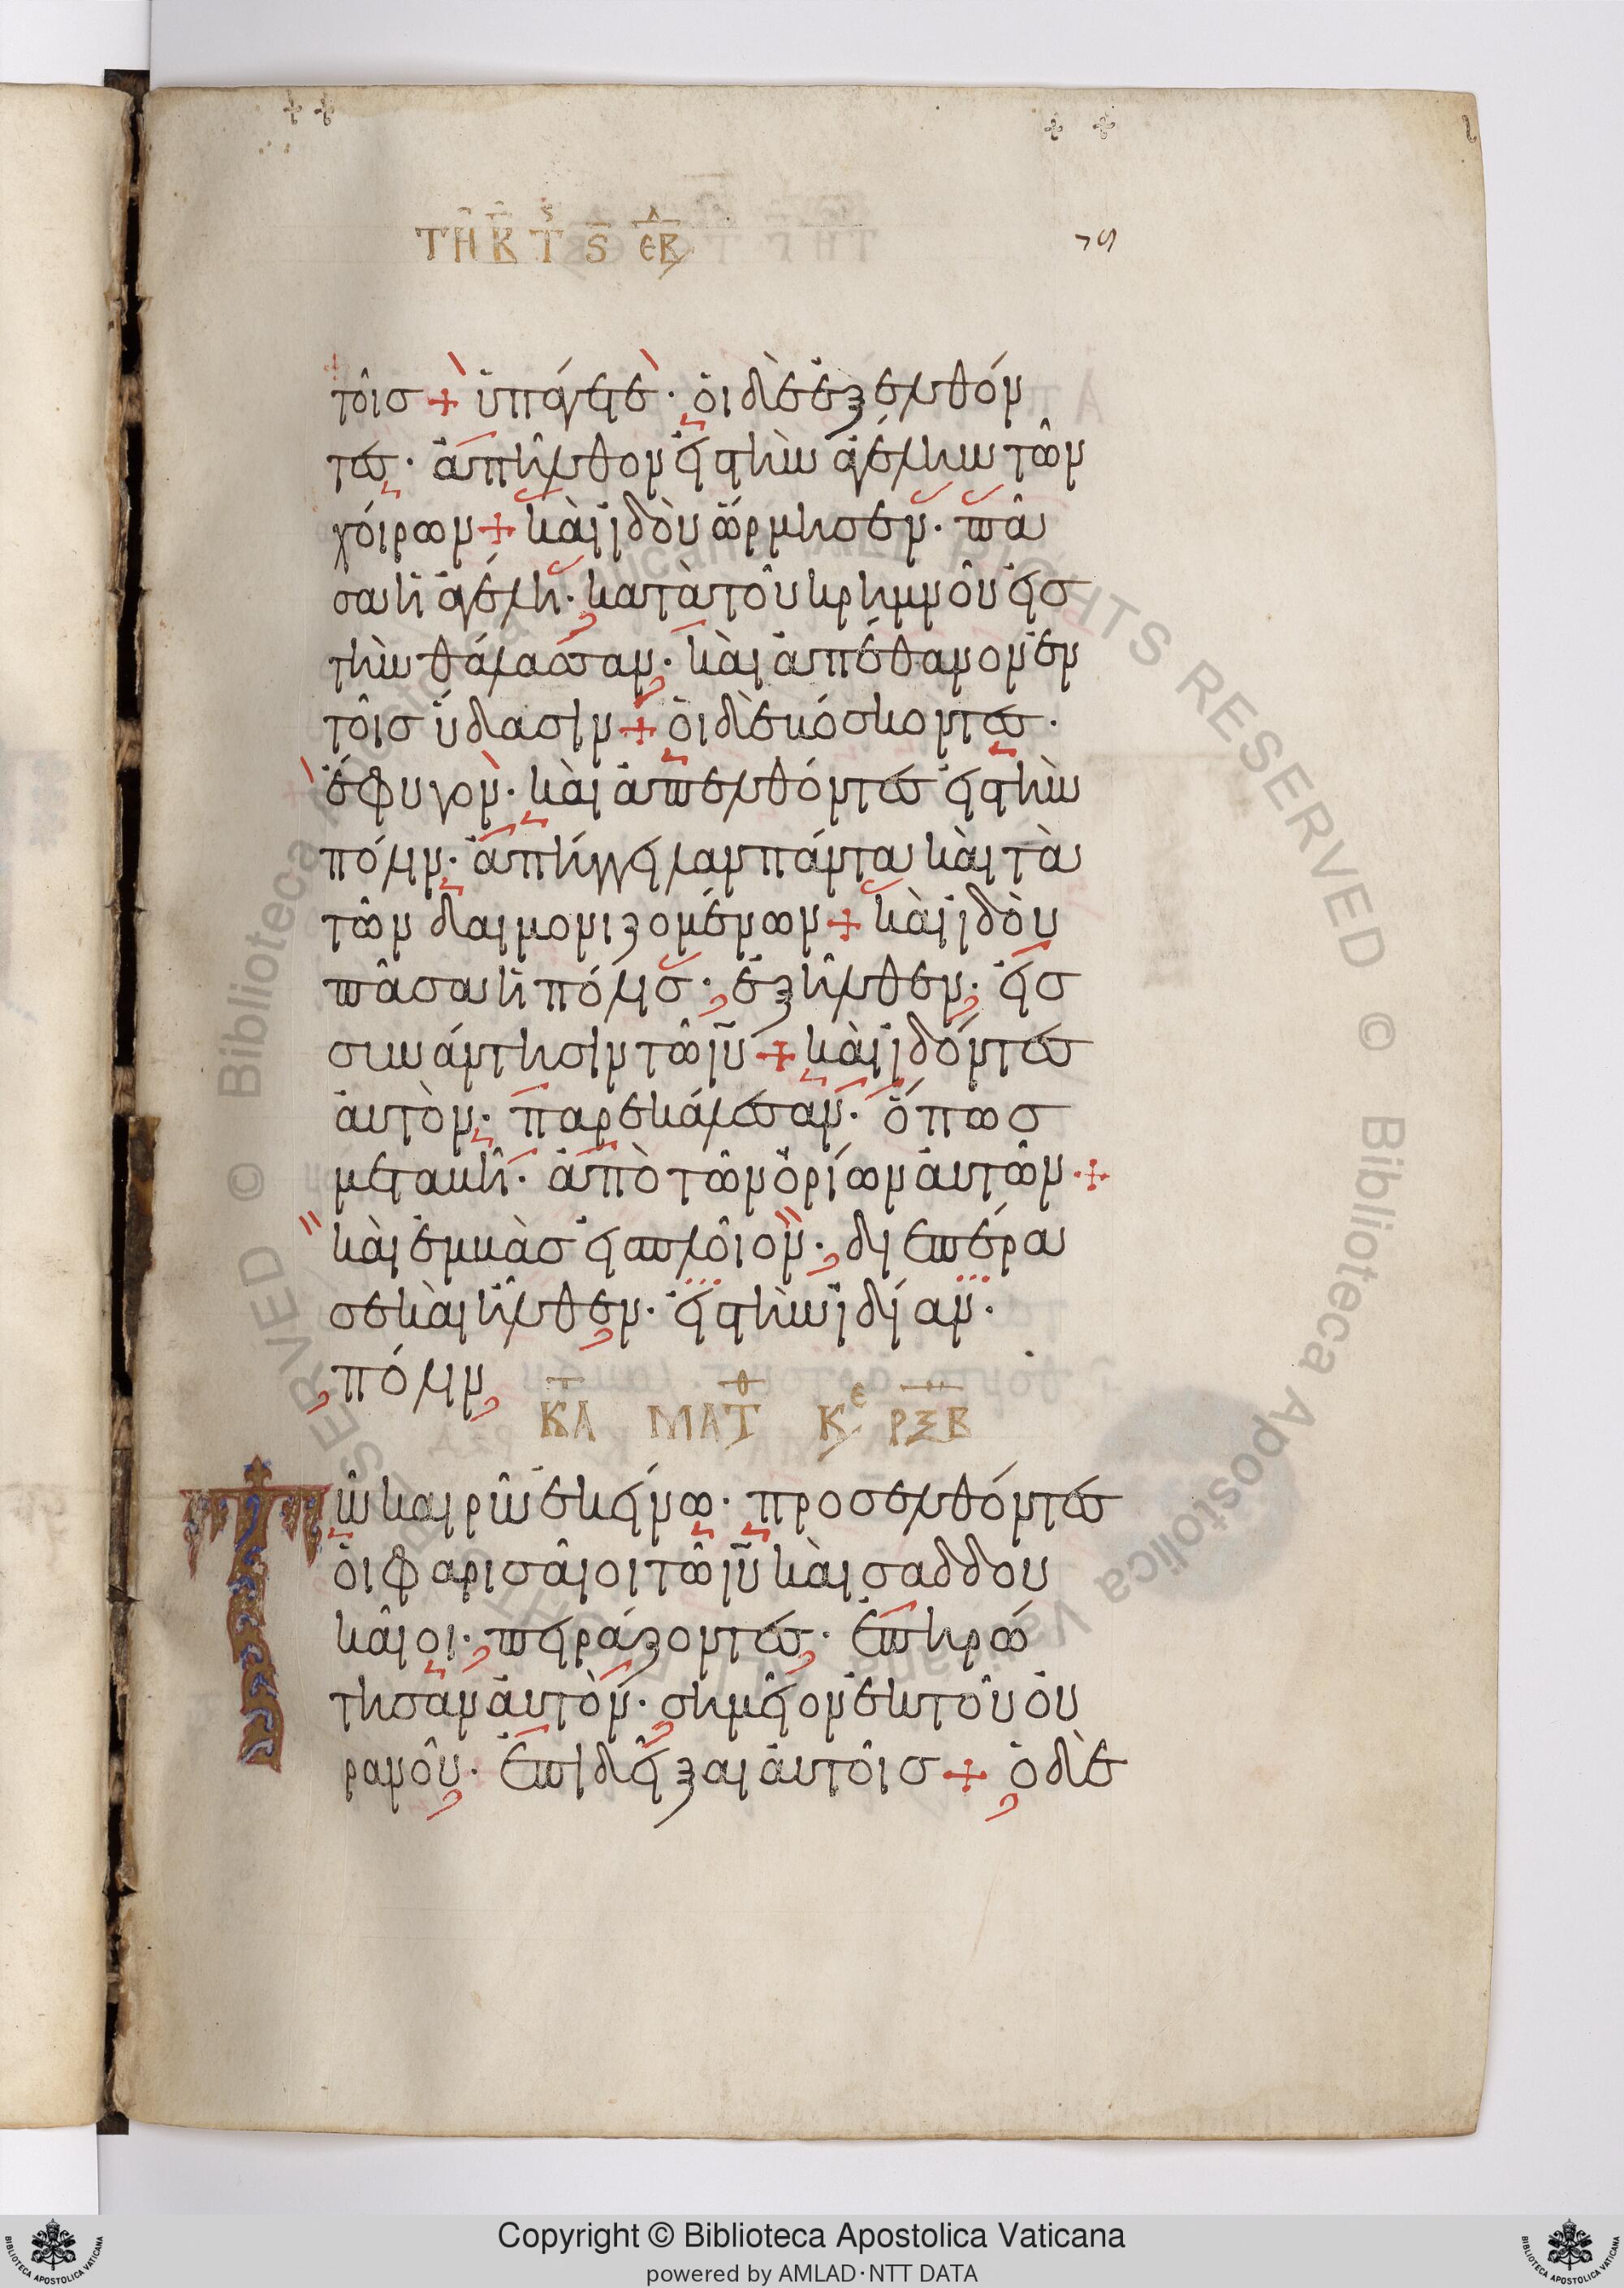 ΤΗ Κ Τ Ϛ ЄΒΔ
τοῖσ + ὑπάγετε · οἱ δὲ ἐξελθόν
τεσ · ἀπῆλθον εἰσ τὴν ἀγέλην τῶν
χοίρων + καὶ ἰδοὺ ὥρμησεν · πᾶ
σα ἡ ἀγέλη · κατὰ τοῦ κρημνοῦ εἰσ
τὴν θάλασσαν · καὶ ἀπέθανον ἐν
τοῖσ ὕδασιν + οἱ δὲ βόσκοντεσ ·
ἔφυγον · καὶ ἀπελθόντεσ εἰσ τὴν
πόλιν · ἀπήγγειλαν πάντα καὶ τὰ
τῶν δαιμονιζομένων + καὶ ἰδοὺ
πᾶσα ἡ πόλισ · ἐξῆλθεν · εἰσ
συνάντησιν τῶ ιυ + καὶ ἰδόντεσ
αὐτὸν · παρεκάλεσαν · ὅπωσ
μεταβῆ · ἀπὸ τῶν ὁρίων αὐτῶν · +
καὶ ἐμβὰσ εἰσ πλοῖον · διεπέρα
σε καὶ ἦλθεν · εἰσ τὴν ἰδίαν ·
πόλιν
Κ Δ ΜΑΤΘ ΚΕ ΡΞΒ
Τῶ καιρῶ ἐκείνω · προσελθόντεσ
οἱ φαρισαῖοι τῶ ιυ καὶ σαδδου
καῖοι · πειράζοντεσ · ἐπηρώ
τησαν αὐτὸν · σημεῖον ἐκ τοῦ οὐ
ρανοῦ · ἐπιδεῖξαι αὐτοῖσ + ὁ δὲ
© Biblioteca Apostolica Vaticana ALL RIGHTS RESERVED © Biblioteca Apostolica Vaticana ALL RIGHTS RESERVED
Copyright © Biblioteca Apostolica Vaticana
powered by AMLAD·NTT DATA